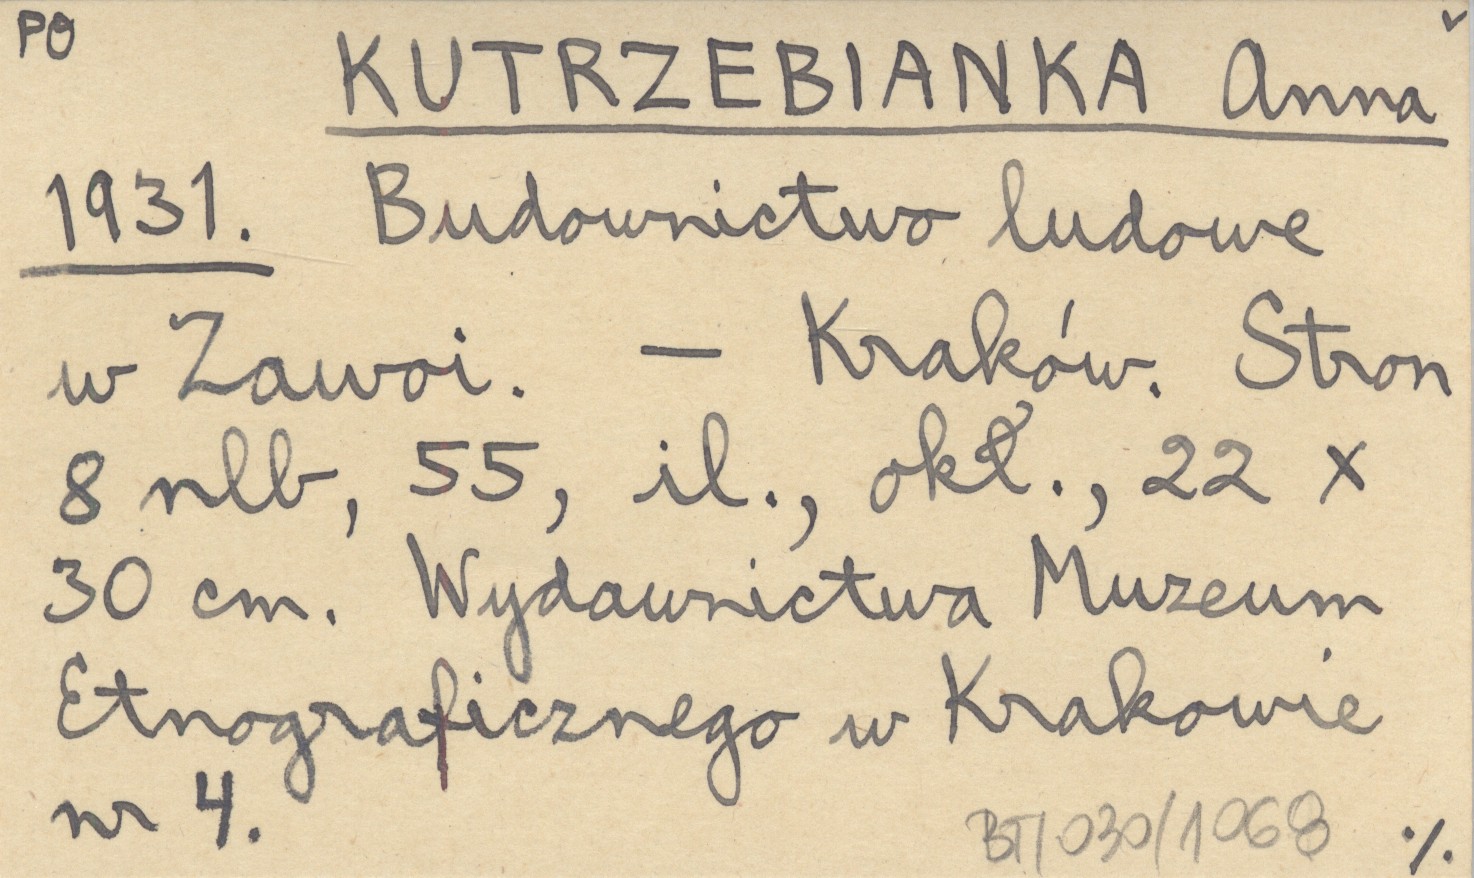 PO
KUTRZEBIANKA Anna
1931. Budownictwo ludowe
w Zawoi. — Kraków. Stron
8 nlb, 55, il., okł., 22 x
30 cm. Wydawnictwa Muzeum
Etnograficznego w Krakowie
nr 4.
BT/030/1068 ./.